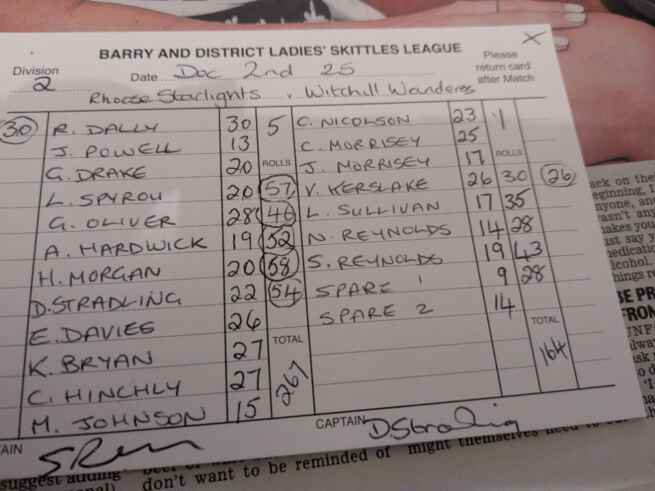 BARRY AND DISTRICT LADIES' SKITTLES LEAGUE
Please return card after Match
Division 2
Date Dec 2nd 25
Rhoose Starlights v Witchill Wanderes
30 R. DALLY 30 5 C. NICOLSON 23 1
J. POWELL 13 C. MORRISEY 25
G. DRAKE 20 ROLLS J. MORRISEY 17 ROLLS
L. SPYROU 20 57 V. KERSLAKE 26 30 26
G. OLIVER 28 46 L. SULLIVAN 17 35
A. HARDWICK 19 52 N. REYNOLDS 14 28
H. MORGAN 20 58 S. REYNOLDS 19 43
D. STRADLING 22 54 SPARE 1 9 28
E. DAVIES 26 SPARE 2 14
K. BRYAN 27 TOTAL TOTAL
C. HINCHLY 27 267 164
M. JOHNSON 15
AIN
CAPTAIN DStradling
suggest adding
don't want to be reminded of
might themselves need to